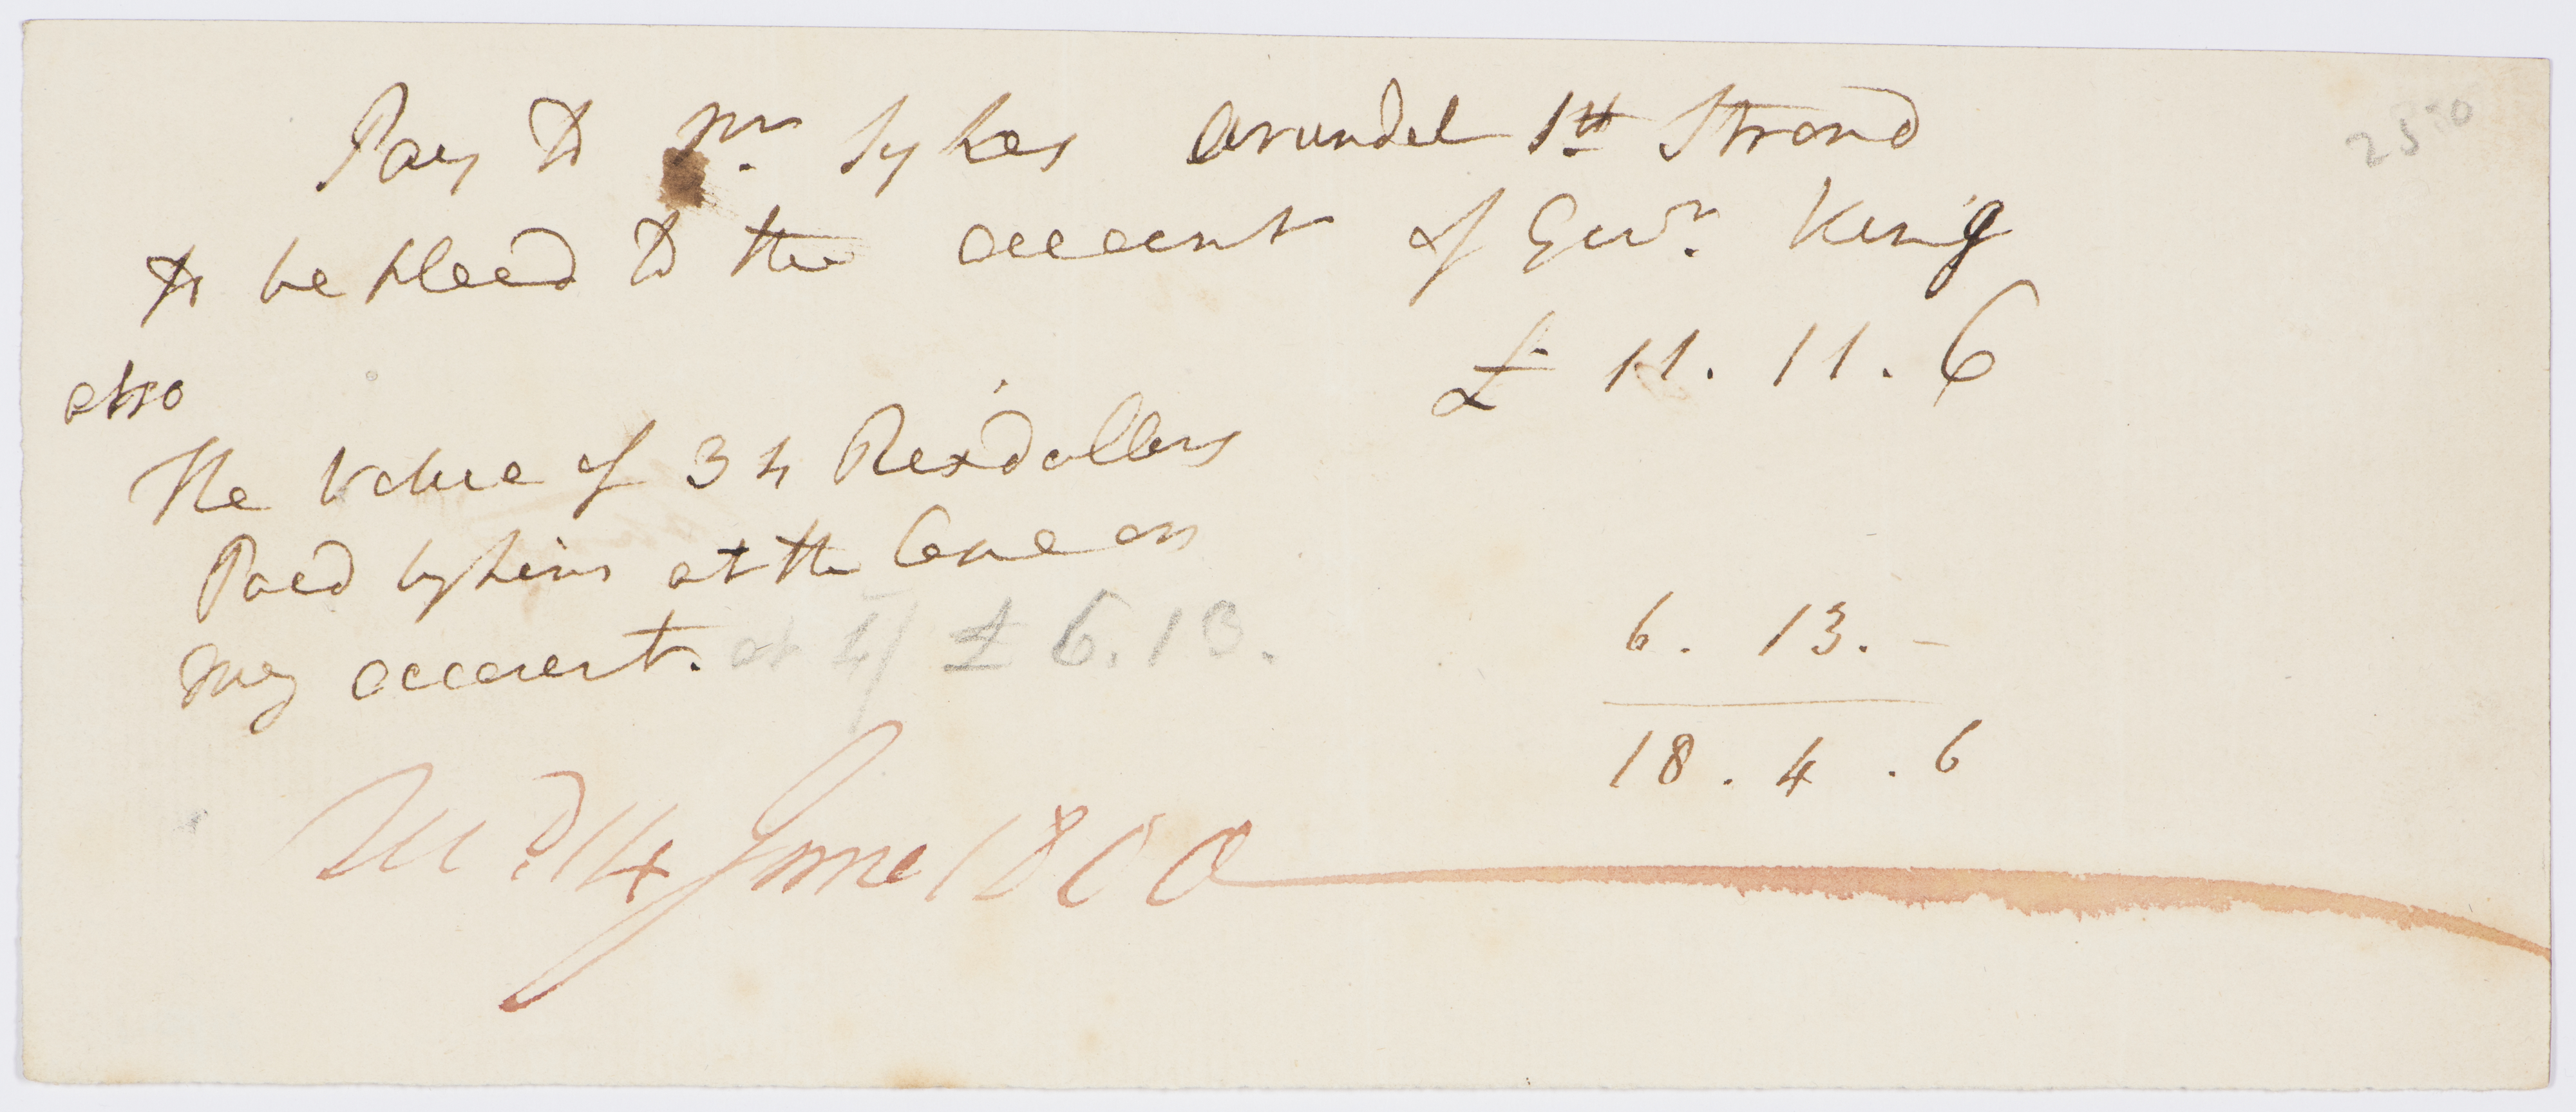 Pay to Mr. Sykes Arundel Stt Strand
25 10
to be placed to the account of Govr. King
£ 11. 11. 6
also
The Value of 34 Rexdollers
Paid by him at the Cape on
my account. at 4/ £ 6.13.
6. 13. -
18. 4. 6
14 June 1800